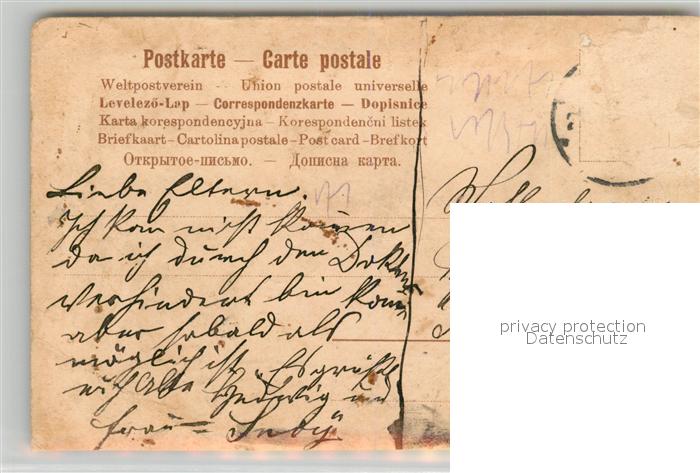 Postkarte — Carte postale
Weltpostverein -- Union postale universelle
Levelező-Lap — Correspondenzkarte — Dopisnice
Karta korespondencyjna – Korespondenční listek
Briefkaart – Cartolina postale – Post card – Brefkort
Открытое-письмо. — Дописна карта.
Liebe Eltern.
Ich kan nicht kommen
da ich durch den Doktor
verhindert bin kome
aber sobald als
möglich ist. Es grüßt
Hedwig und
Frau
privacy protection
Datenschutz